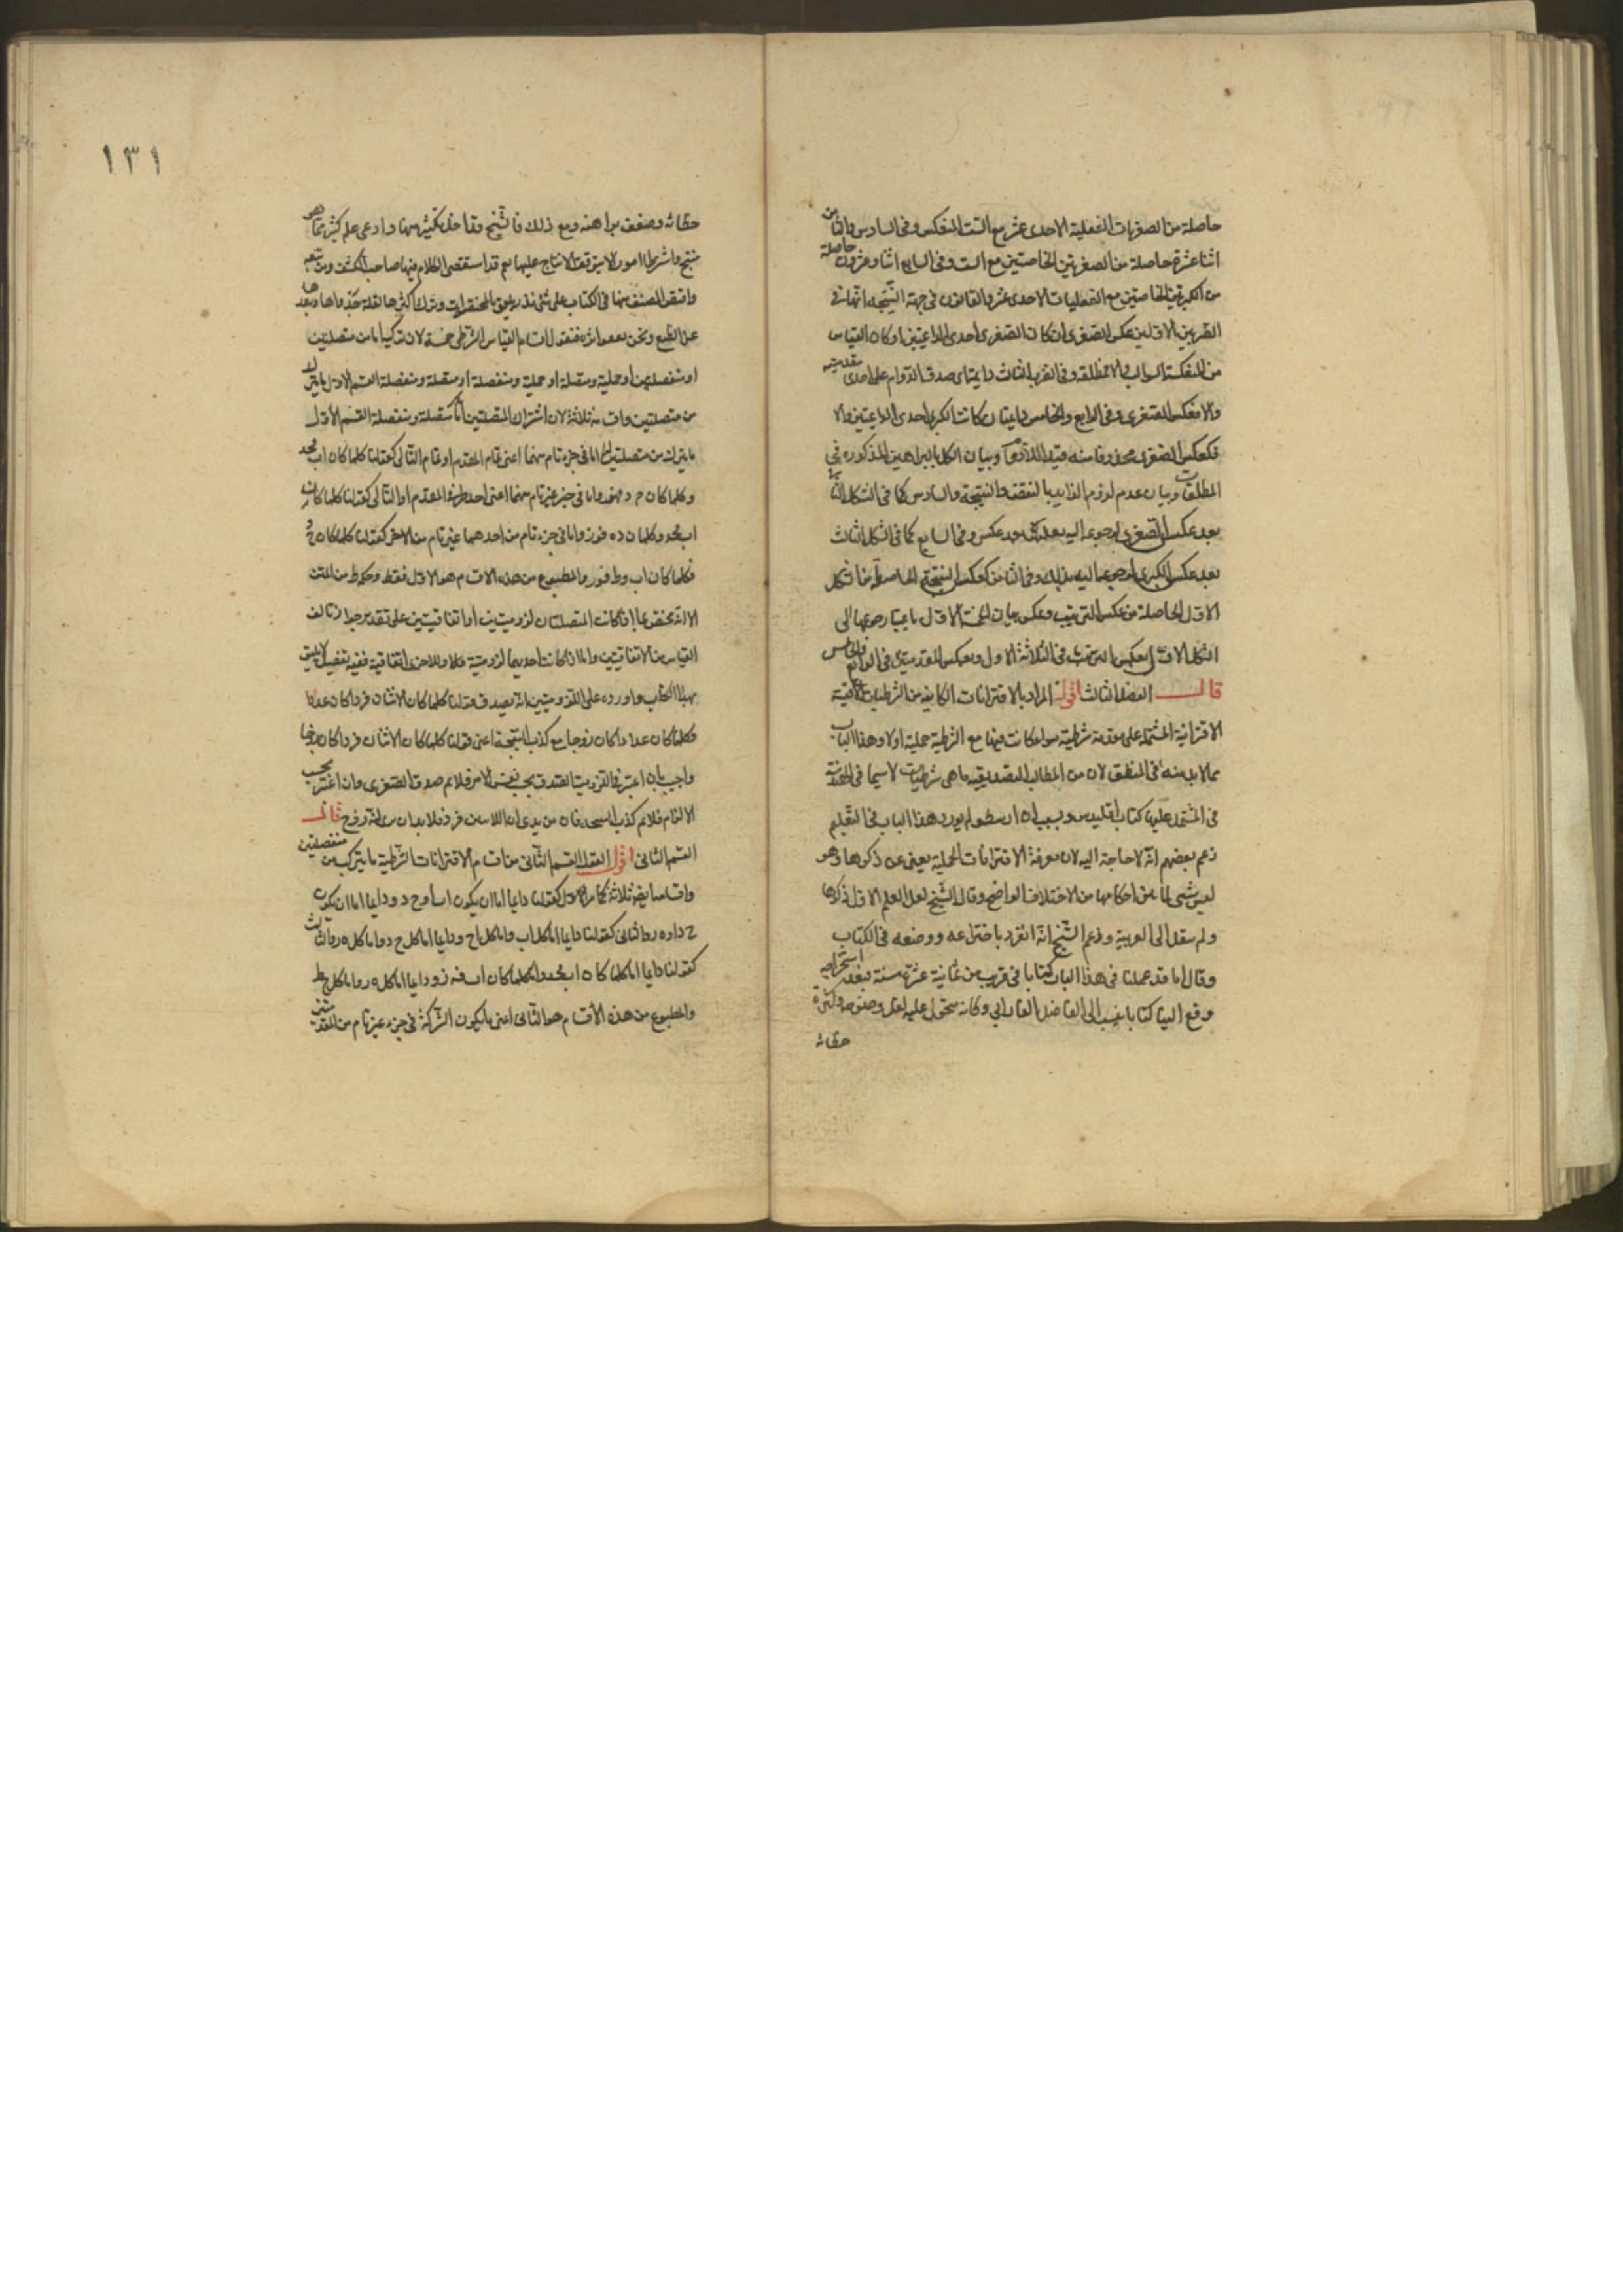 حاصلة من الصغريات الفعلية الاحدى عشر مع الست المنعكس وفي السادس والثامن
اثنا عشرة حاصلة من الصغريين الخاصتين مع الست وفي السابع اثنا وعشرون حاصلة
من الكبريين الخاصتين مع الفعليات الاحدى عشر والقانون في جهة النتيجة انها في
الضربين الاولين عكس الصغرى ان كان الصغرى احدى الدايمتين او كان القياس
من المنعكسة السوالب والا فمطلقة وفي الضرب الثالث دايمة ان صدق الدوام على احدى مقدمتيه
والا فعكس الصغرى وفي الرابع والخامس دايمة ان كانت الكبرى احدى الدايمتين والا
فكعكس الصغرى محذوفا منه قيد اللادوام وبيان الكل بالبراهين المذكورة في
المطلقات وبيان عدم لزوم الزايد بالنقض والنتيجة والسادس كما في الشكل الثاني
بعد عكس الصغرى لرجوعه اليه بعد عكس وفي السابع كما في الشكل الثالث
بعد عكس الكبرى لرجوعها اليه بذلك وفي الثامن كعكس النتيجة الحاصلة من الشكل
الاول الحاصلة من عكس الترتيب وعكس بيان الخمسة الاول باعتبار رجوعها الى
الشكل الاول بعكس الترتيب في الثلاثة الاول وبعكس المقدمتين في الرابع والخامس
قال الفصل الثالث اقول المراد بالاقترانات الكاينة من الشرطيات الاقيسة
الاقترانية المشتملة على مقدمة شرطية سواء كانت فيها مع الشرطية حملية اولا وهذا الباب
مما لابد منه في المنطق لان من المطالب التصديقية ما هي شرطيات لا سيما في الهندسة
في المشتمل عليها كتاب اقليدس وبسبب ان ارسطو لم يورد هذا الباب في التعليم
زعم بعضهم انه لا حاجة اليه لان معرفة الاقترانات الحملية يغني عن ذكرها وهو
ليس بشيء لما بين احكامها من الاختلاف الواضح وقال الشيخ لعل المعلم الاول ذكرها
ولم ينقل الى العربية وزعم الشيخ انه انفرد باختراعه ووضعه في الكتاب
وقال انا قد عملنا في هذا الباب كتابا في قريب من ثمانية عشرة سنة فبعد استخراجه
وقع الينا كتابا ينسب الى الفاضل الفارابي وكانه منحول عليه لعل وضوحه ولكثرة
خطائه
١٣١
خطائه وضعف براهنه ومع ذلك فالشيخ وقد اخل بكثير منها وادعى علم كثير مما هو
منتج واشرط امورا لا يتوقف الانتاج عليها مع قد استقصى الكلام فيها صاحب الكشف ومن تبعه
واقتصر المصنف منها في الكتاب على شيء نذر يليق بالمختصرات وترك اكثرها لقلة جدواها وبعدها
عن الطبع ونحن نقفوا اثره فنقول اقسام القياس الشرطي خمسة لان تركبه اما من متصلتين
او منفصلتين او حملية ومتصلة او حملية ومنفصلة او متصلة ومنفصلة القسم الاول ما يتركب
من متصلتين واقسامه ثلاثة لان اشتراك المتصلتين اما متصلة ومنفصلة القسم الاول
ما يتركب من متصلتين اما في جزء تام منهما اعني تمام المقدم او تمام التالي كقولنا كلما كان اب فجد
وكلما كان ج د فهز واما في جزء غير تام منهما اعني احد طرفي المقدم او التالي كقولنا كلما كان
اب فجد وكلما كان ده فوز واما في جزء تام من احدهما غير تام من الاخر كقولنا كلما كان ج د
فكلما كان اب وط فوز والمطبوع من هذه الاقسام هو الاول فقط وحكمه ط من المتن
الا انه مختص بما اذا كانت المتصلتان لزوميتين او اتفاقيتين على تقدير جواز تالف
القياس من الاتفاقيتين واما اذا كانت احديهما لزومية مثلا والاخرى اتفاقية ففيه تفصيل لا يليق
بهذا الكتاب واورد على اللزوميتين انه يصدق قولنا كلما كان الاثنان فردا كان عددا
وكلما كان عددا كان زوجا مع كذب النتيجة اعني قولنا كلما كان الاثنان فردا كان زوجا
واجيب بان اعتبر في اللزومية الصدق بحسب نفس الامر فلا نم صدق الصغرى وان اعتبر بحسب
الالزام فلا نم كذب النتيجة فان من يرى ان الاثنين فرد فلا بد ان يرى انه زوج قال
القسم الثاني اقول القسم الثاني من اقسام الاقترانات الشرطية ما يتركب من منفصلتين
واقسامه ايضا ثلاثة كما مر الاول كقولنا دايما اما ان يكون اب او ج د ودايما اما ان يكون
ج د او ه ز والثاني كقولنا دايما اما كل اب واما كل اج ودايما اما كل ج د واما كل ه ز والثالث
كقولنا دايما اما كلما كان اب فجد واما كلما كان اب فه ز ودايما اما كل ه ز واما كل ج ط
والمطبوع من هذه الاقسام هو الثاني اعني ما يكون الشركة في جزء غير تام من المقدمتين